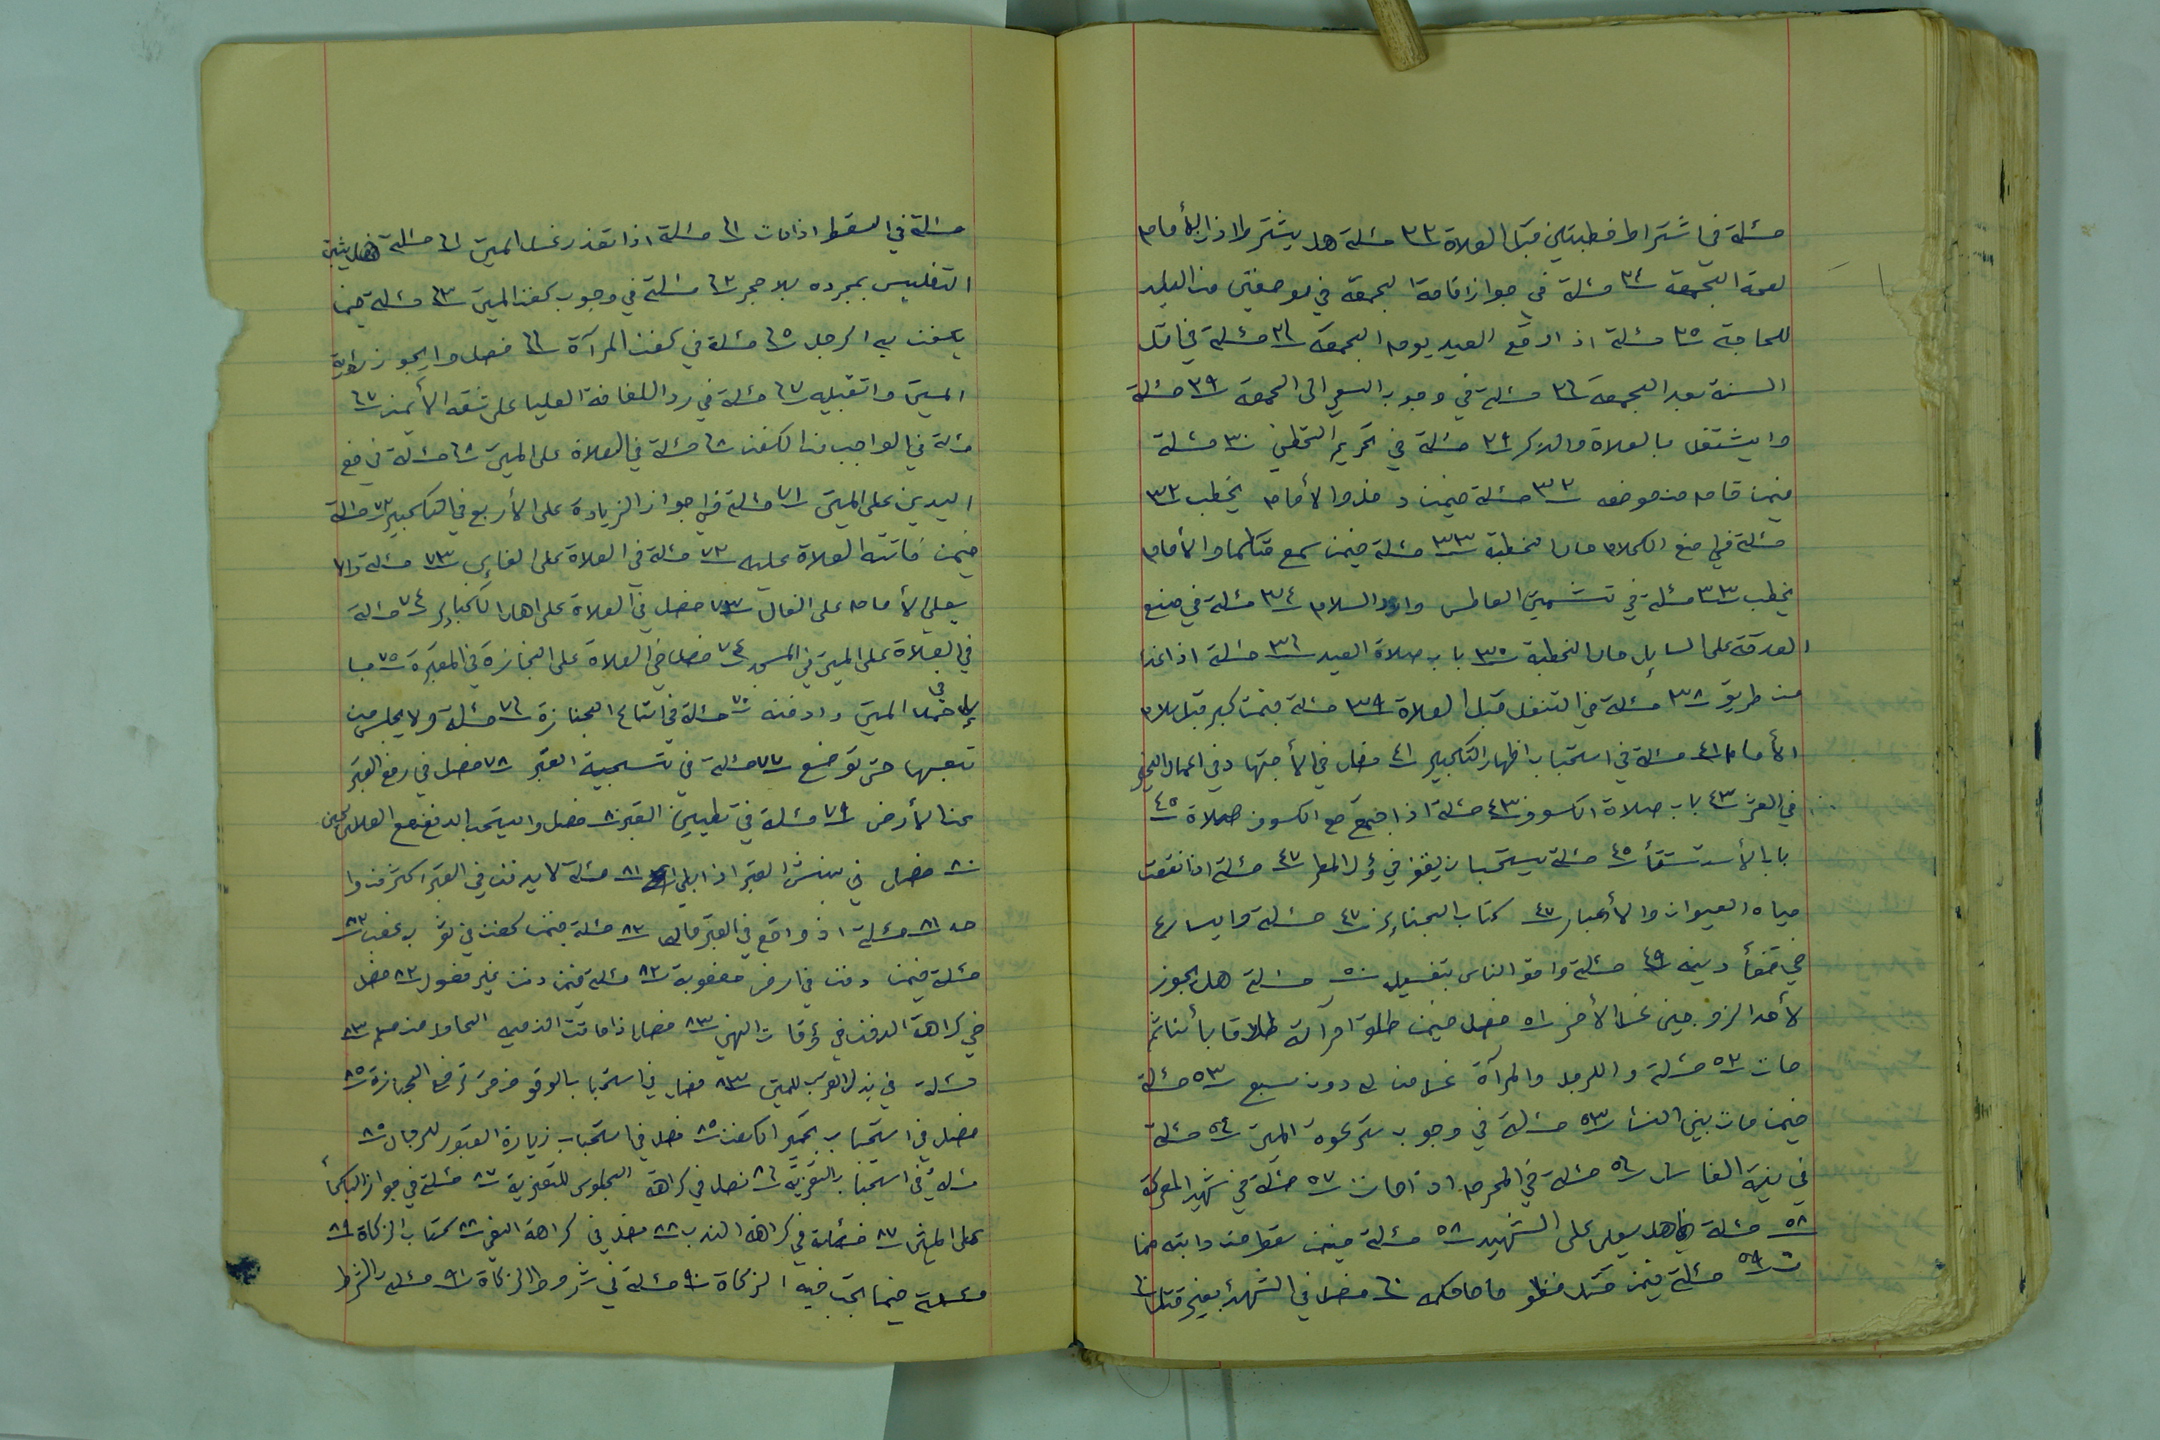 مسئلة في اشتراط خطبتين قبل الصلاة ٢٣ مسئلة هل يشترط اذن الأمام
لصحة الجمعة ٢٤ مسئلة في جواز اقامة الجمعة في موضعين من البلد
للحاجة ٢٥ مسئلة اذا وقع العيد يوم الجمعة ٢٦ مسئلة في اقل
السنة بعد الجمعة ٢٦ مسئلة في وجوب السعي الى الجمعة ٢٩ مسئلة
وا يشتغل بالصلاة والذكر ٢٩ مسئلة في تحريم التخطي ٣٠ مسئلة
فيمن قام من موضعه ٣٢ مسئلة فيمن دخل والأمام يخطب ٣٢
مسئلة في منع الكلام حال الخطبة ٣٣ مسئلة فيمن سمع متكلما والأمام
يخطب ٣٣ مسئلة في تشميت العاطس وارد السلام ٣٤ مسئلة في منع
الصدقة على السايل حال الخطبة ٣٥ باب صلاة العيد ٣٦ مسئلة اذا غدا
من طريق ٣٨ مسئلة في التنفل قبل الصلاة ٣٩ مسئلة فيمن كبر قبل سلام
الأمام ٤١ مسئلة في استحباب اظهار التكبير ٤١ فصل في الأجتهاد في اعمال الخير
في العشر ٤٣ باب صلاة الكسوف ٤٣ مسئلة اذا اجتمع مع الكسوف صلاة ٤٥
باب الأستسقأ ٤٥ مسئلة يستحب ان يقف في أول المطر ٤٧ مسئلة اذا نقصت
مياه العيون والأبار ٤٧ كتاب الجنايز ٤٧ مسئلة وايسارع
في قضأ دينه ٤٩ مسئلة واحق الناس بتغسيله ٥٠ مسئلة هل يجوز
لأحد الزوجين غسل الأخر ٥١ فصل فيمن طلق امرآته طلاقا بأئنا ثم
مات ٥٢ مسئلة واللرجل والمرآة غسل من له دون سبع ٥٣ مسئلة
فيمن مات بين النسأ ٥٣ مسئلة في وجوب ستر عورة الميت ٥٤ مسئلة
في نية الغاسل ٥٦ مسئلة في المحرم اذا مات ٥٧ مسئلة في شهيد المعركة
٥٨ مسئلة هل يصلى على الشهيد ٥٨ مسئلة فيمن سقط من دابته فما
ت ٥٩ مسئلة فيمن قتل مظلو ما ما حكمه ٦٠ فصل في الشهدأ بغير قتل ٦٠
مسئلة في السقط اذا مات ٦١ مسئلة اذا تعذر غسل الميت ٦١ مسئلة هل يثبت
التفليس بمجرده بلا حجر ٦٢ مسئلة في وجوب كفن الميت ٦٣ مسئلة فيما
يكفن به الرجل ٦٥ مسئلة في كفن المرآة ٦٦ فصل وايجوز رؤاية
الميت واتقبيله ٦٧ مسئلة في رد اللفافة العليا على شقه الأيمن ٦٧
مسئلة في الواجب من الكفن ٦٨ مسئلة في الصلاة على الميت ٦٨ مسئلة في رفع
اليدين على الميت ٧١ مسئلة في جواز الزيادة على الأربع في التكبير ٧٢ مسئلة
فيمن فاتته الصلاة عليه ٧٢ مسئلة في الصلاة على الغايب ٧٣ مسئلة والا
يصلي الأمام على الغال ٧٣ فصل في الصلاة على اهل الكباير ٧٤ مسئلة
في الصلاة على الميت في المسجد ٧٤ فصل في الصلاة على الجنازة في المقبرة ٧٥ مسا
يل في حمل الميت وادفنه ٧٥ مسئلة في اتباع الجنازة ٧٦ مسئلة ولا يجلس من
تبعها حتى توضع ٧٧ مسئلة في تسجية القبر ٧٨ فصل في رفع القبر
عن الأرض ٧٩ مسئلة في تطيين القبر ٨٠ فصل وايستحب الدفن مع الصالحين
٨٠ فصل في نبش القبر اذا بلي ٨١ مسئلة لا يدفن في القبر اكثر من وا
حد ٨١ مسئلة اذ واقع في القبر مال ٨٢ مسئلة فيمن كفن في ثوب غصب ٨٢
مسئلة فيمن دفن في ارض مغصوبة ٨٢ مسئلة فيمن دفن بغير غسل ٨٢ فصل
في كراهة الدفن في أوقات النهي ٨٣ فصل اذا ماتت الذميه الحامل من مسلم ٨٣
مسئلة في بذل القرب للميت ٨٣ فصل في استحباب الوقوف حتى ترفع الجنازة ٨٥
فصل في استحباب تحسين الكفن ٨٥ فصل في استحباب زيارة القبور للرجال ٨٥
مسئلة في استحباب التعزية ٨٦ فصل في كراهة الجلوس للتعزية ٨٧ مسئلة في جواز البكأ
على الميت ٨٧ مسئلة في كراهة الندب ٨٨ فصل في كراهة النعي ٨٨ كتاب الزكاة ٨٩
مسئلة فيما تجب فيه الزكاة ٩٠ مسئلة في شروط الزكاة ٩١ مسئلة الشرط